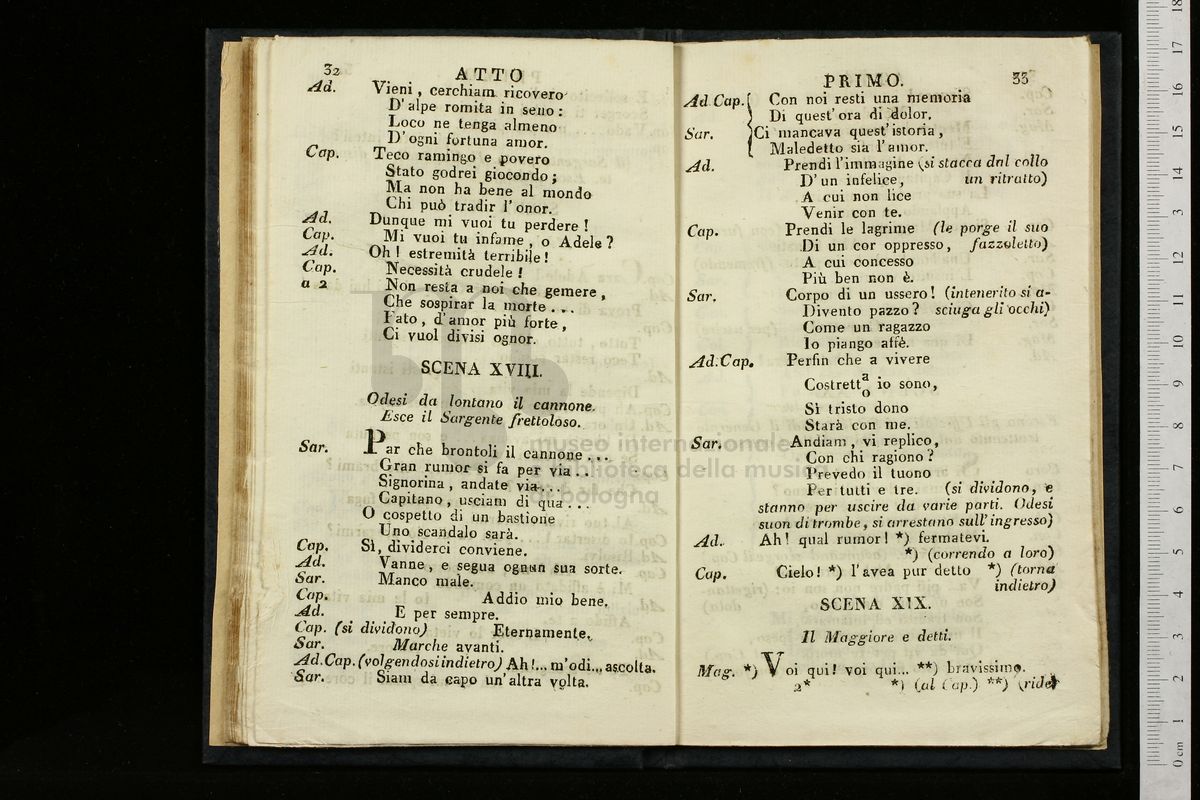 32
ATTO
Ad. Vieni, cerchiam ricovero
D'alpe romita in seno:
Loco ne tenga almeno
D'ogni fortuna amor.
Cap. Teco ramingo e povero
Stato godrei giocondo;
Ma non ha bene al mondo
Chi può tradir l'onor.
Ad. Dunque mi vuoi tu perdere!
Cap. Mi vuoi tu infame, o Adele?
Ad. Oh! estremità terribile!
Cap. Necessità crudele!
a 2 Non resta a noi che gemere,
Che sospirar la morte...
Fato, d'amor più forte,
Ci vuol divisi ognor.
SCENA XVIII.
Odesi da lontano il cannone.
Esce il Sargente frettoloso.
Sar. Par che brontoli il cannone...
Gran rumor si fa per via...
Signorina, andate via...
Capitano, usciam di qua...
O cospetto di un bastione
Uno scandalo sarà.
Cap. Sì, dividerci conviene.
Ad. Vanne, e segua ognun sua sorte.
Sar. Manco male.
Cap. Addio mio bene.
Ad. E per sempre.
Cap. (si dividono) Eternamente.
Sar. Marche avanti.
Ad. Cap. (volgendosi indietro) Ah!... m'odi... ascolta.
Sar. Siam da capo un'altra volta.
PRIMO.
33
Ad Cap. Con noi resti una memoria
Di quest'ora di dolor.
Sar. Ci mancava quest'istoria,
Maledetto sia l'amor.
Ad. Prendi l'immagine (si stacca dal collo
D'un infelice, un ritratto)
A cui non lice
Venir con te.
Cap. Prendi le lagrime (le porge il suo
Di un cor oppresso, fazzoletto)
A cui concesso
Più ben non è.
Sar. Corpo di un ussero! (intenerito si a-
Divento pazzo? sciuga gli occhi)
Come un ragazzo
Io piango affè.
Ad. Cap. Perfin che a vivere
Costrett a/o io sono,
Sì tristo dono
Starà con me.
Sar. Andiam, vi replico,
Con chi ragiono?
Prevedo il tuono
Per tutti e tre. (si dividono, e
stanno per uscire da varie parti. Odesi
suon di trombe, si arrestano sull'ingresso)
Ad. Ah! qual rumor! *) fermatevi.
*) (correndo a loro)
Cap. Cielo! *) l'avea pur detto *) (torna
indietro)
SCENA XIX.
Il Maggiore e detti.
Mag. *) Voi qui! voi qui... **) bravissimo.
2* *) (al Cap.) **) (ride)
museo internazionale
e biblioteca della musica
di bologna
0 cm 1 2 3 4 5 6 7 8 9 10 11 12 13 14 15 16 17 18